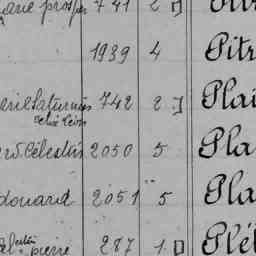 arie prosper 741 2
1939 4 Pitr
arie Saturnin 742 2 Plai
Célestin 2050 5 Pla
douard 2051 5 Pla
pierre 287 1 Plé